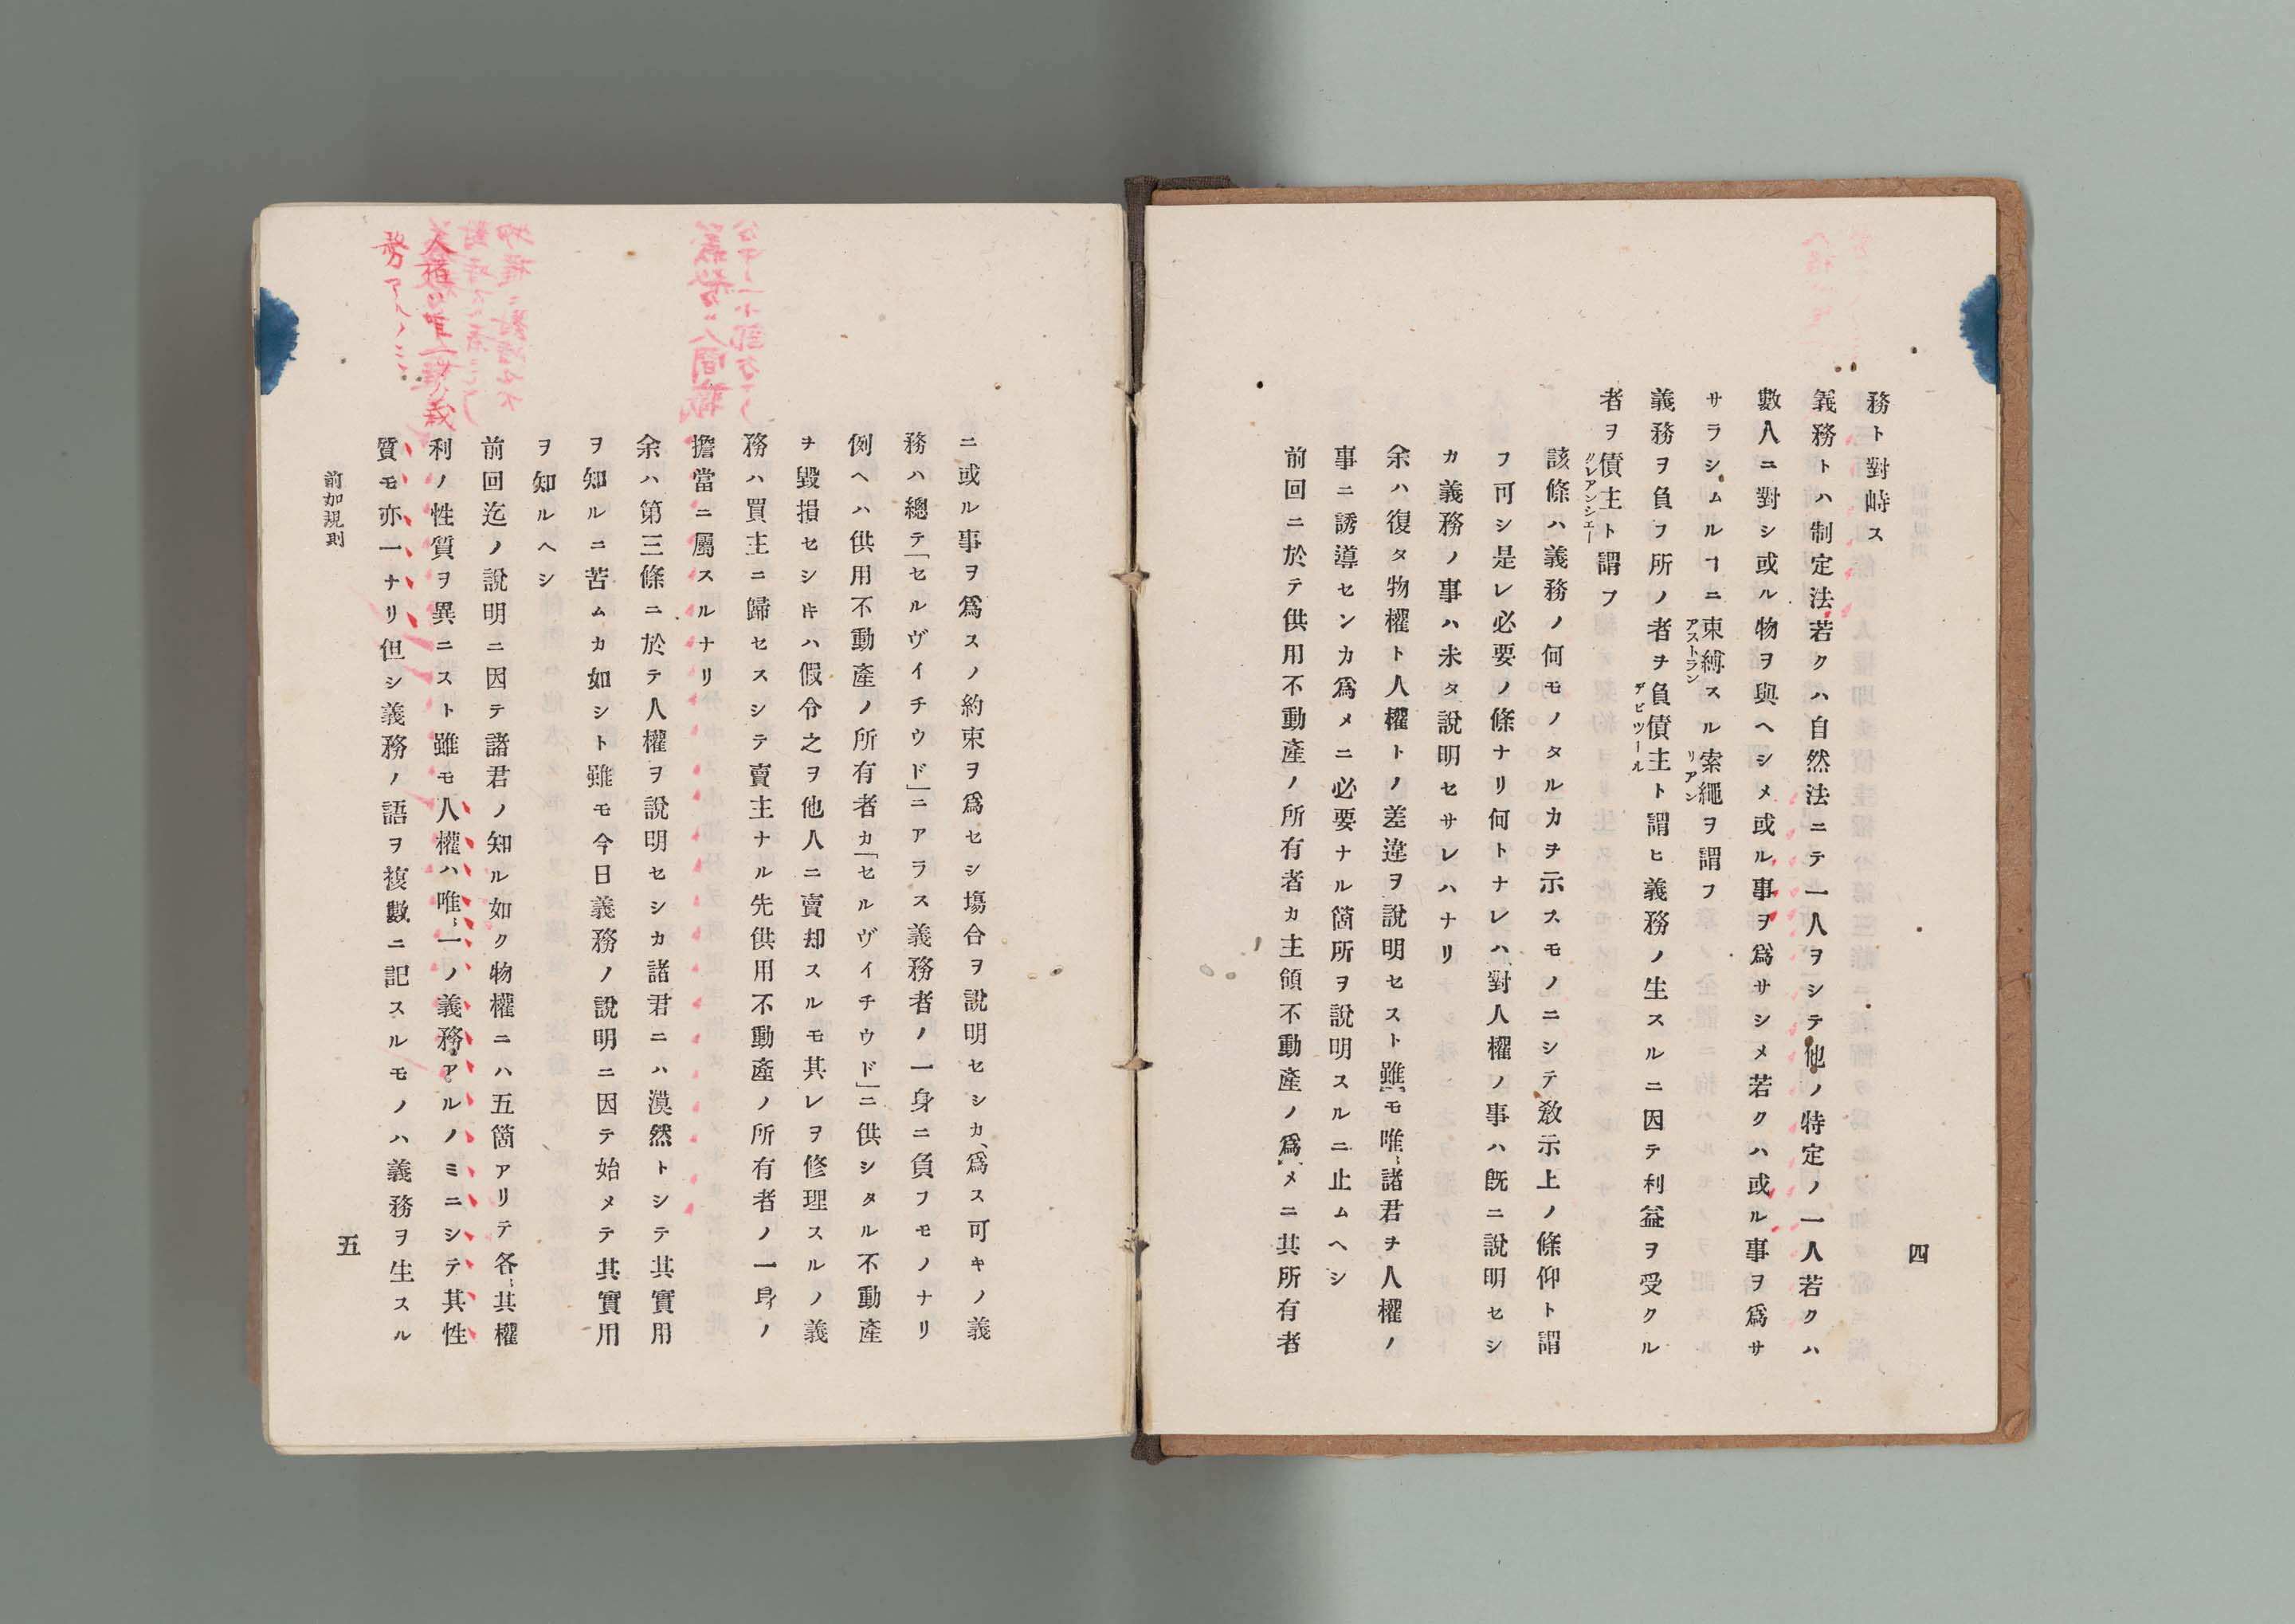 四
務ト對峙ス
義務トハ制定法若クハ自然法ニテ一人ヲシテ他ノ特定ノ一人若クハ
數人ニ對シ或ル物ヲ與ヘシメ或ル事ヲ爲サシメ若クハ或ル事ヲ爲サ
サラシムルヿニ束縛スル索繩ヲ謂フ
アストラン
リアン
義務ヲ負フ所ノ者ヲ負債主ト謂ヒ義務ノ生スルニ因テ利益ヲ受クル
デビツール
者ヲ債主ト謂フ
クレアンシエー
該條ハ義務ノ何モノタルカヲ示スモノニシテ敎示上ノ條仰ト謂
フ可シ是レ必要ノ條ナリ何トナレハ對人權ノ事ハ旣ニ說明セシ
カ義務ノ事ハ未タ說明セサレハナリ
余ハ復タ物權ト人權トノ差違ヲ說明セスト雖モ唯諸君ヲ人權ノ
事ニ誘導センカ爲メニ必要ナル箇所ヲ說明スルニ止ムヘシ
前回ニ於テ供用不動產ノ所有者カ主領不動產ノ爲メニ其所有者
ニ或ル事ヲ爲スノ約束ヲ爲セシ塲合ヲ說明セシカ、爲ス可キノ義
務ハ總テ「セルヴイチウド」ニアラス義務者ノ一身ニ負フモノナリ
例ヘハ供用不動產ノ所有者カ「セルヴイチウド」ニ供シタル不動產
ヲ毀損セシ𪜈ハ假令之ヲ他人ニ賣却スルモ其レヲ修理スルノ義
務ハ買主ニ歸セスシテ賣主ナル先供用不動產ノ所有者ノ一身ノ
擔當ニ屬スルナリ
余ハ第三條ニ於テ人權ヲ說明セシカ諸君ニハ漠然トシテ其實用
ヲ知ルニ苦ムカ如シト雖モ今日義務ノ說明ニ因テ始メテ其實用
ヲ知ルヘシ
前回迄ノ說明ニ因テ諸君ノ知ル如ク物權ニハ五箇アリテ各〻其權
利ノ性質ヲ異ニスト雖モ人權ハ唯〻一ノ義務アルノミニシテ其性
質モ亦一ナリ但シ義務ノ語ヲ複數ニ記スルモノハ義務ヲ生スル
前加規則
五